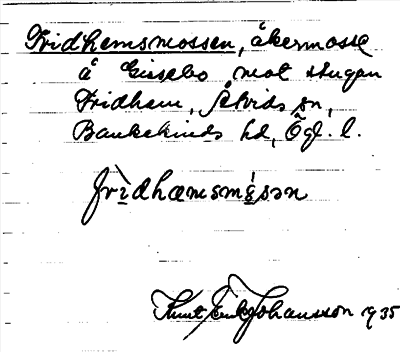 Fridhemsmossen, åkermosse
å Gisselbo mot stugan
Fridhem, Åtvids sn,
Bankekinds hd, Ögl. l.
frìdhæmsmɷ́sən
Knut Erik Johansson 1935